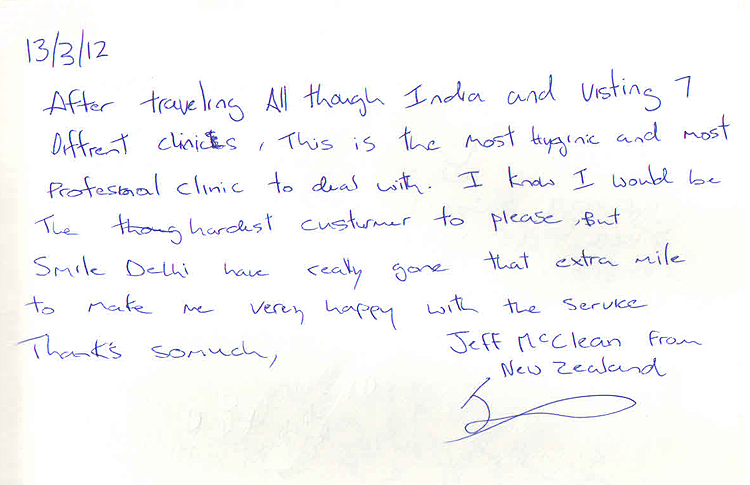 13/3/12
After traveling All though India and Visting 7
Diffrent clinics, This is the most Hyginic and most
Profesional clinic to deal with. I know I would be
The thoug hardest custumer to please, But
Smile Delhi have really gone that extra mile
to make me verey happy with the service
Thank's somuch,
Jeff McClean From
New Zealand